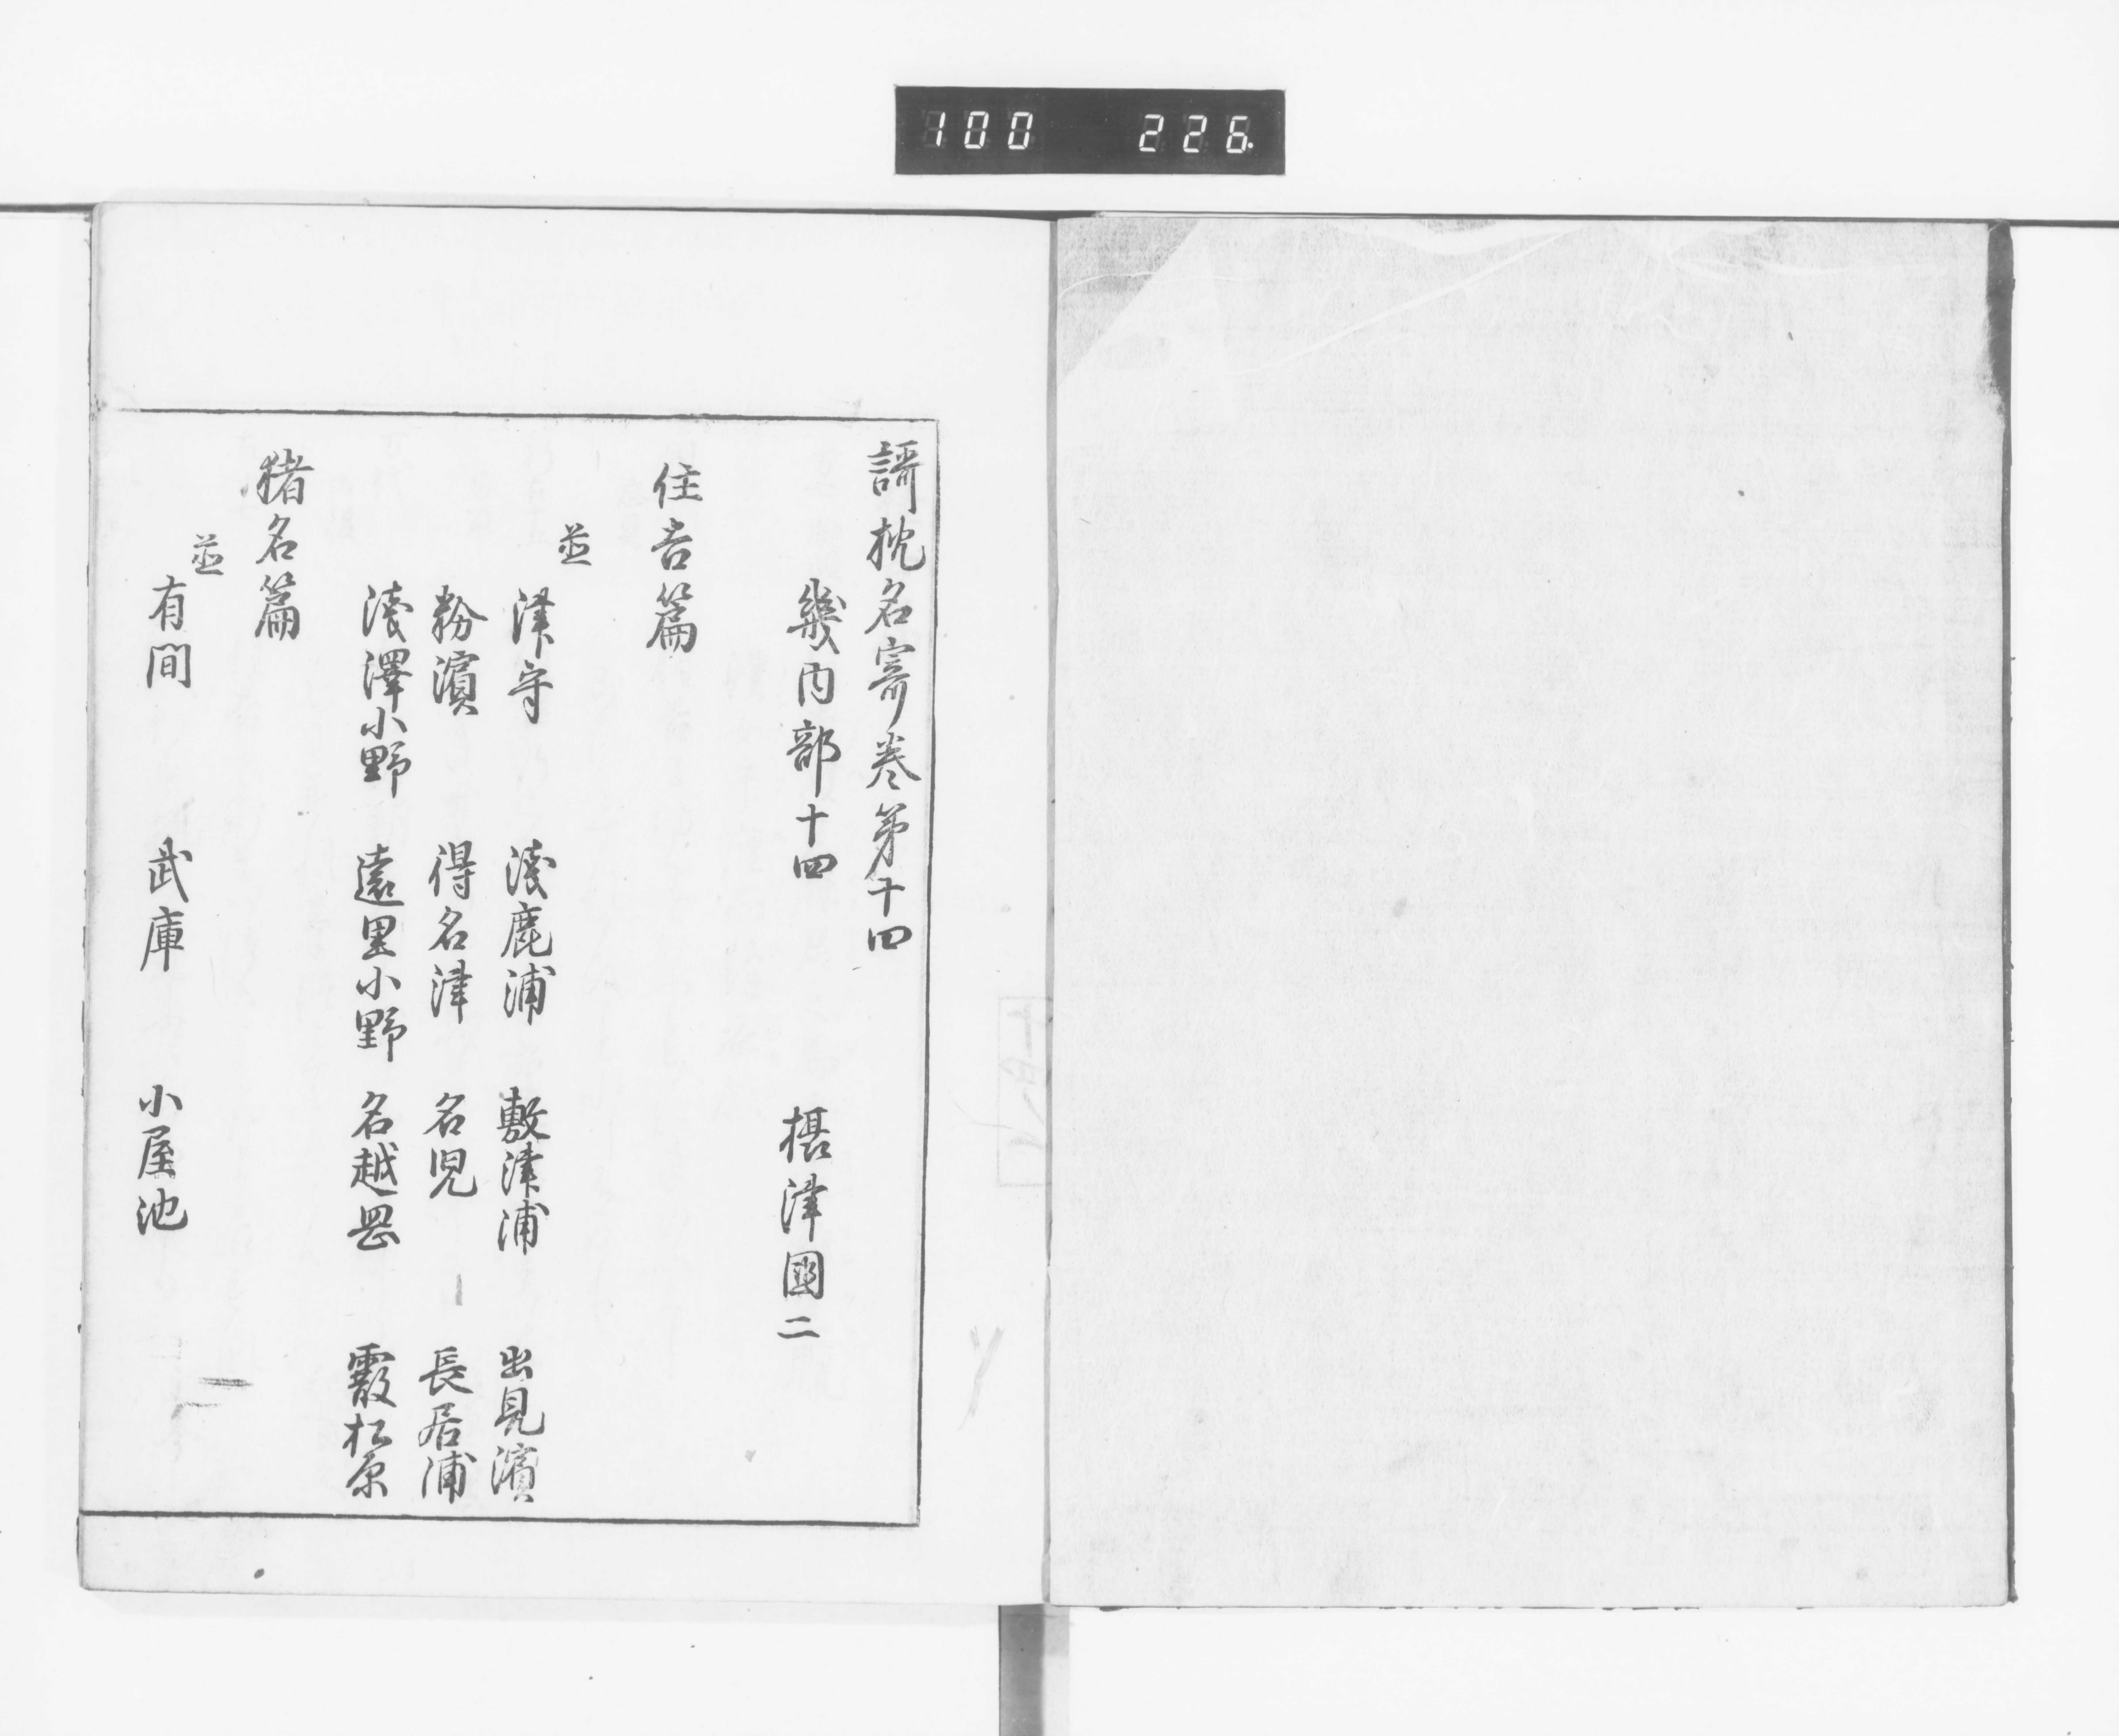 100 226
謌枕名寄卷第十四
畿内部十四 摂津國二
住吉篇
並
津守 淺鹿浦 敷津浦 出見濱
粉濱 得名津 名児 長居浦
淺澤小野 遠里小野 名越岡 霰松原
猪名篇
並
有間 武庫 小屋池